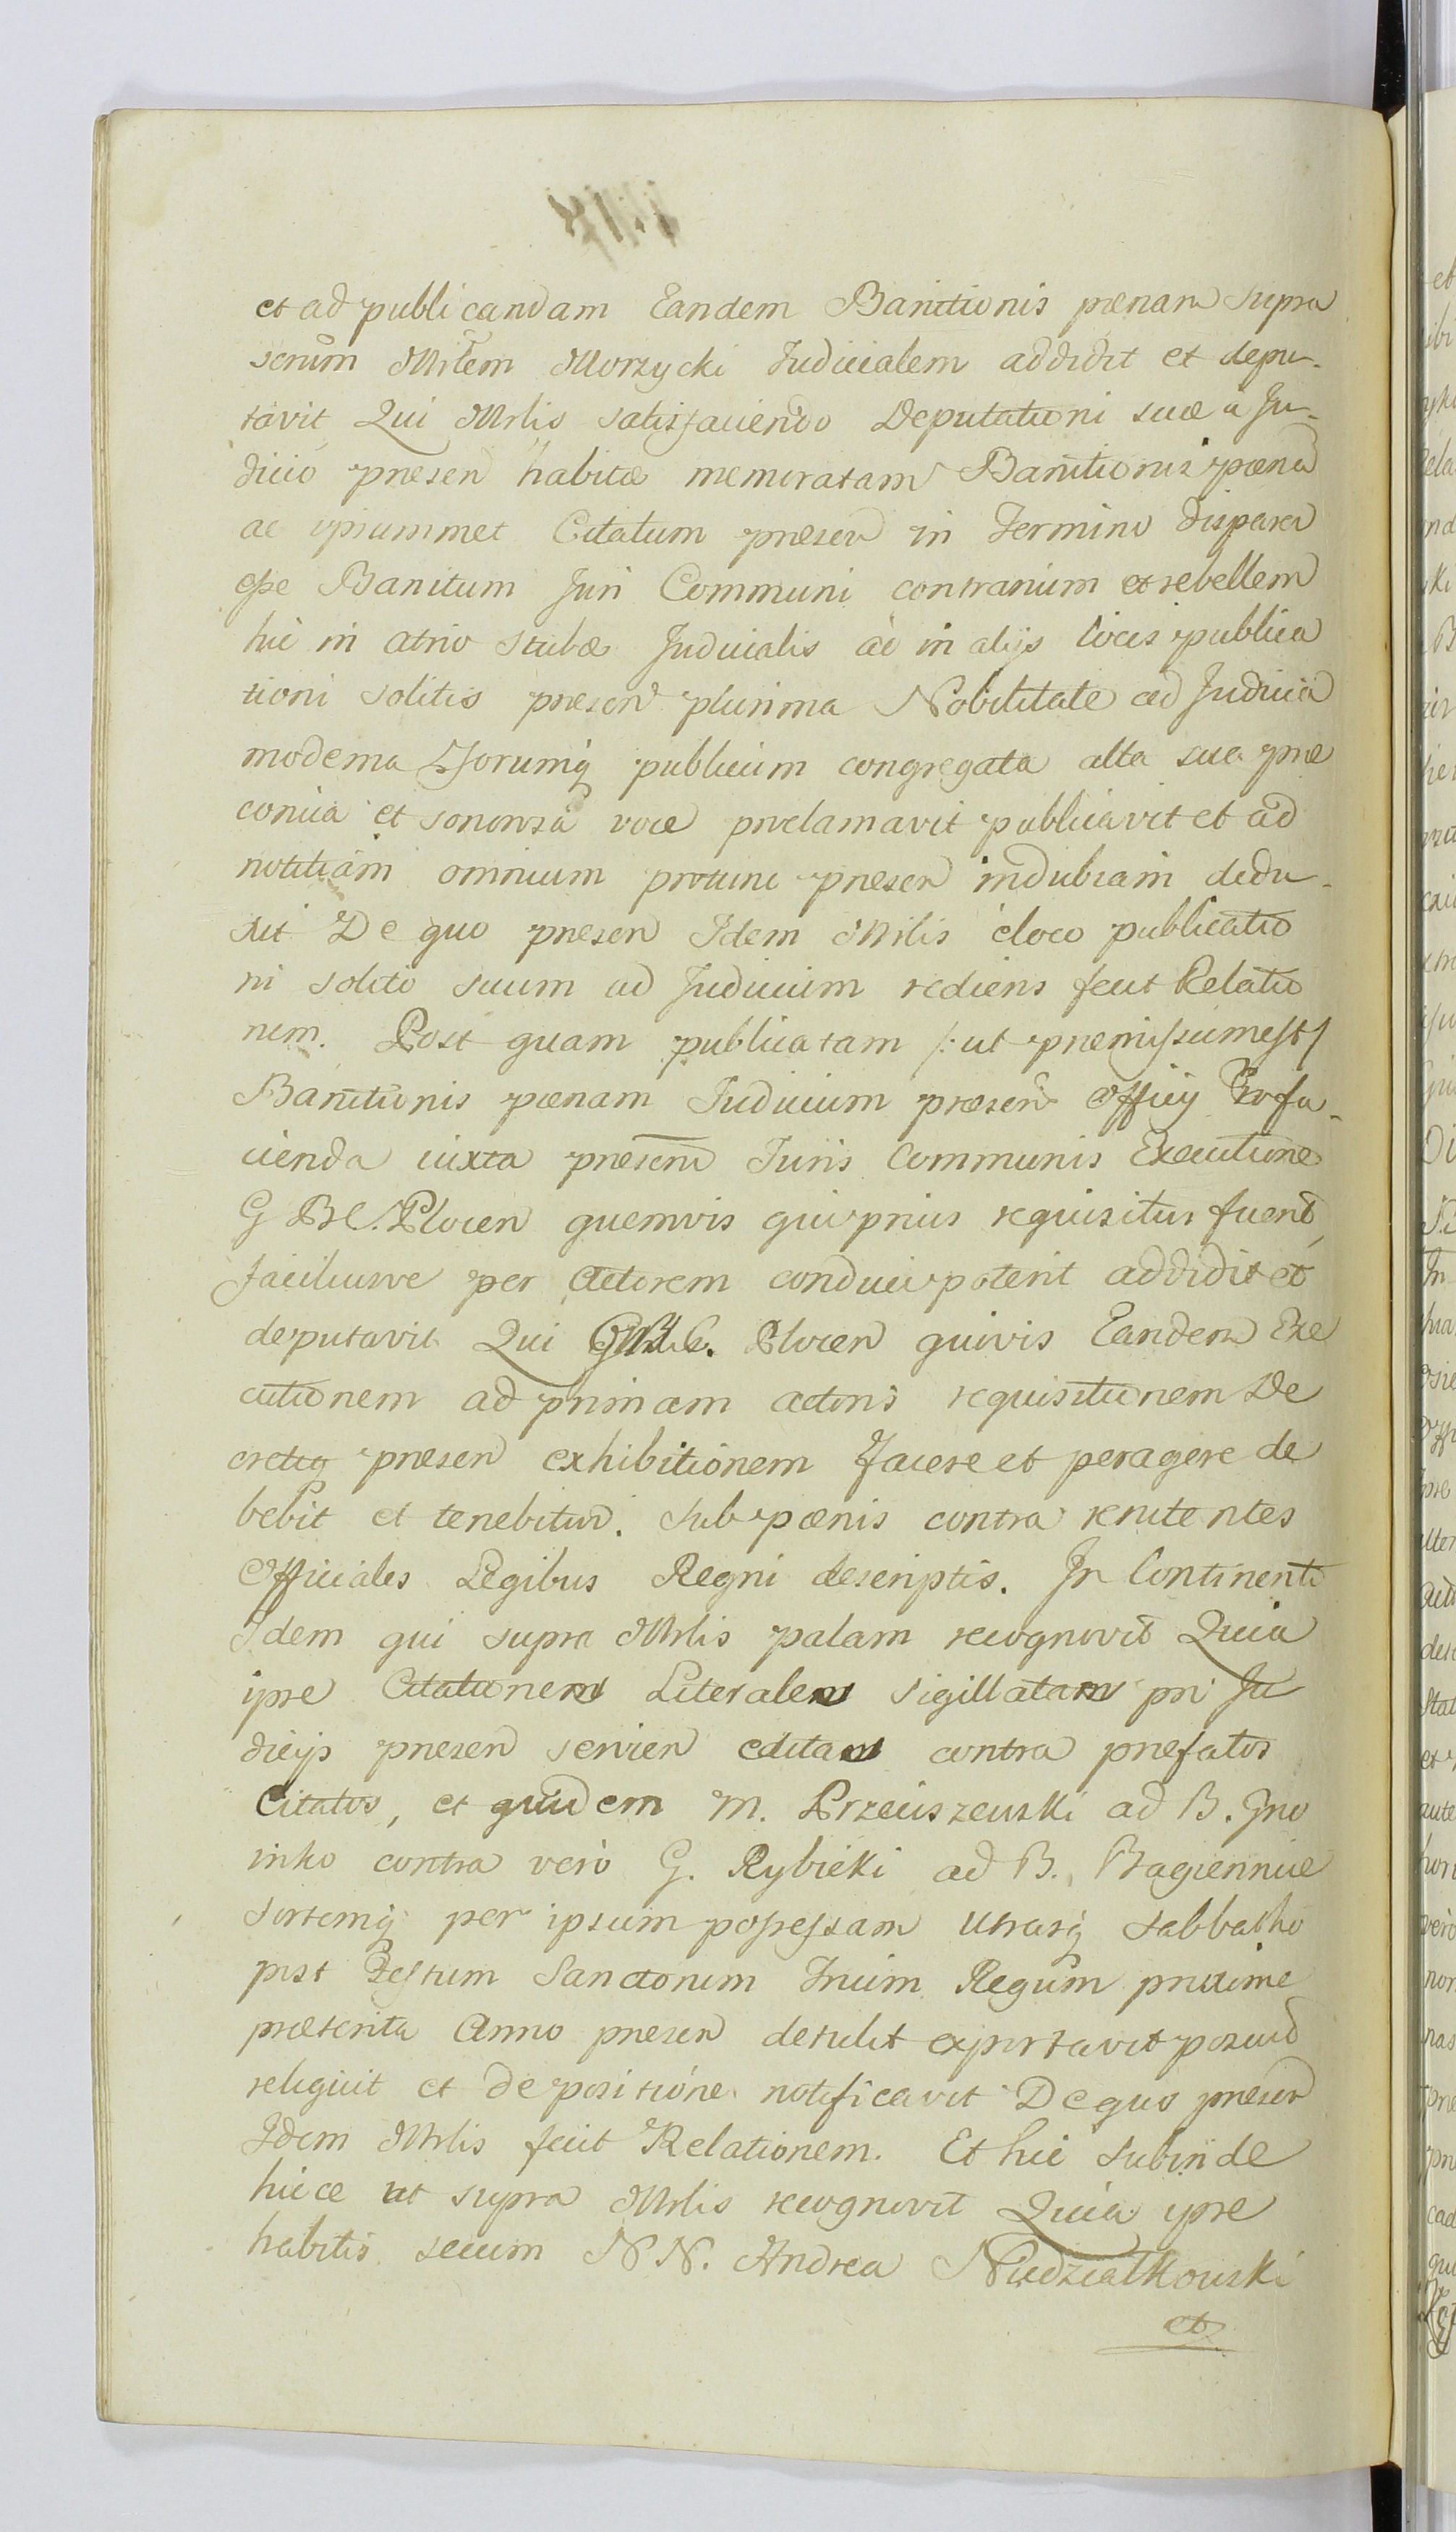 et ad publicandam Eandem Banitionis pœnam supra
scrūm Mrlem Morzycki Judicialem addidit et depu-
tavit Qui Mrlis satisfaciendo Deputationi suæ a Ju-
dicio præsen habitæ memoratam Banitionis pœnā
ac ipsummet Citatum præsen in Termino
esse Banitum Juri Communi contrarium et rebellem
hic in atrio stubæ Judicialis ac in alijs locis publica
tioni solitis præsen plurima Nobilitate ad Judicia
moderna Forumq publicum congregata alta sua præ
conica et sonorosa voce proclamavit publicavit et ad
notitiam omnium protunc præsen indubiam dedu-
xit De quo præsen Idem Mrlis e loco publicatio
ni solito suum ad Judicium rediens fecit Relatio
nem. Post quam publicatam /: ut præmissum est /
Banitionis pœnam Judicium præsen Officij Pro fa-
cienda iuxta præsens Juris Communis Executione
G B C. Plocen quemvis qui prius requisitus fuerit,
faciliusve per Actorem conduci poterit addidit et
deputavit Qui Plocen quivis Eandem Exe
cutionem ad primam actoris requisitionem De
cretiq præsen exhibitionem facere et peragere de
bebit et tenebitur. sub pœnis contra renitentes
Officiales Legibus Regni descriptis. In Continenti
Idem qui supra Mrlis palam recognovit Quia
ipse Citationem Literalem sigillatam pri Ju
dicijs præsen servien editam contra præfatos
Citatos, et quidem M. Przeciszewski ad B. Gno
inko contra vero G. Rybicki ad B. Bagiennice
sortemq per ipsum possessam utrasq Sabbatho
post Festum Sanctorum Trium Regum proxime
præterita Anno præsen detulit exportavit posuit
reliquit et de positione notificavit De quo præsen
Idem Mrlis fecit Relationem. Et hic subinde
hicce ut supra Mrlis recognovit Quia ipse
habitis secum N N. Andrea Niedzialkowski
et